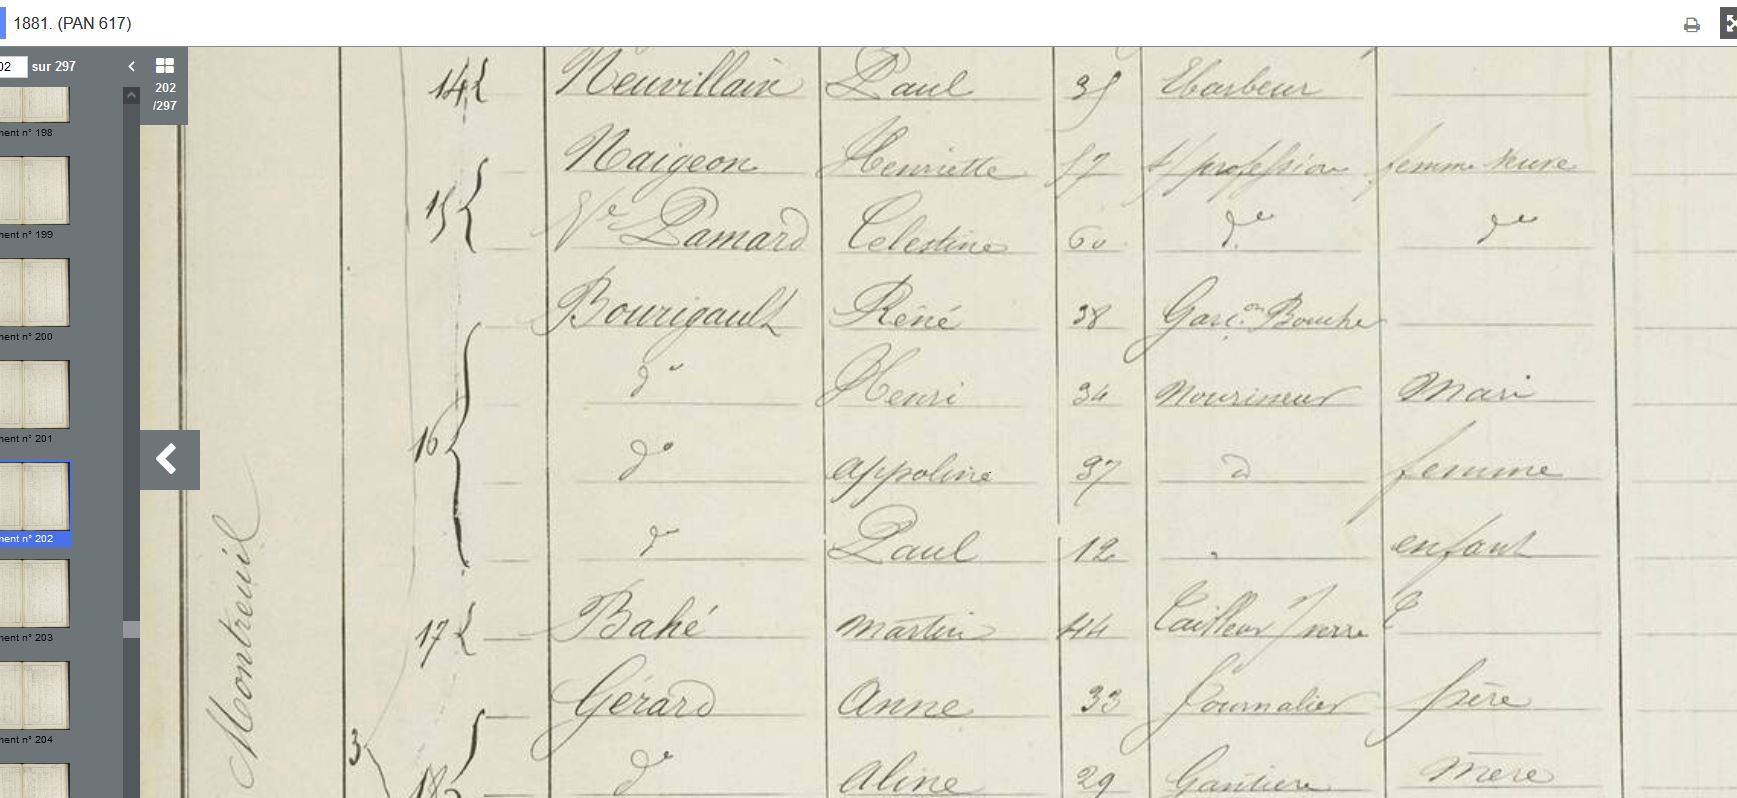 1881. (PAN 617)
02 sur 297
202
/297
ment n° 198
ment n° 199
ment n° 200
ment n° 201
ment n° 202
ment n° 203
ment n° 204
Montreuil
3
14 Neuvillain Paul 35 Ebarbeur
15 Naigeon Henriette 57 s/ profession femme veuve
Ve Pamard Célestine 60 do do
16 Bourigault Réné 38 Garc.on Bouche
do Henri 34 Nourineur Mari
do Appoline 37 d femme
do Paul 12 enfant
17 Bahé Martin 44 Tailleur s/ verre
18 Gérard Anne 33 Journalier père
do Aline 29 mère